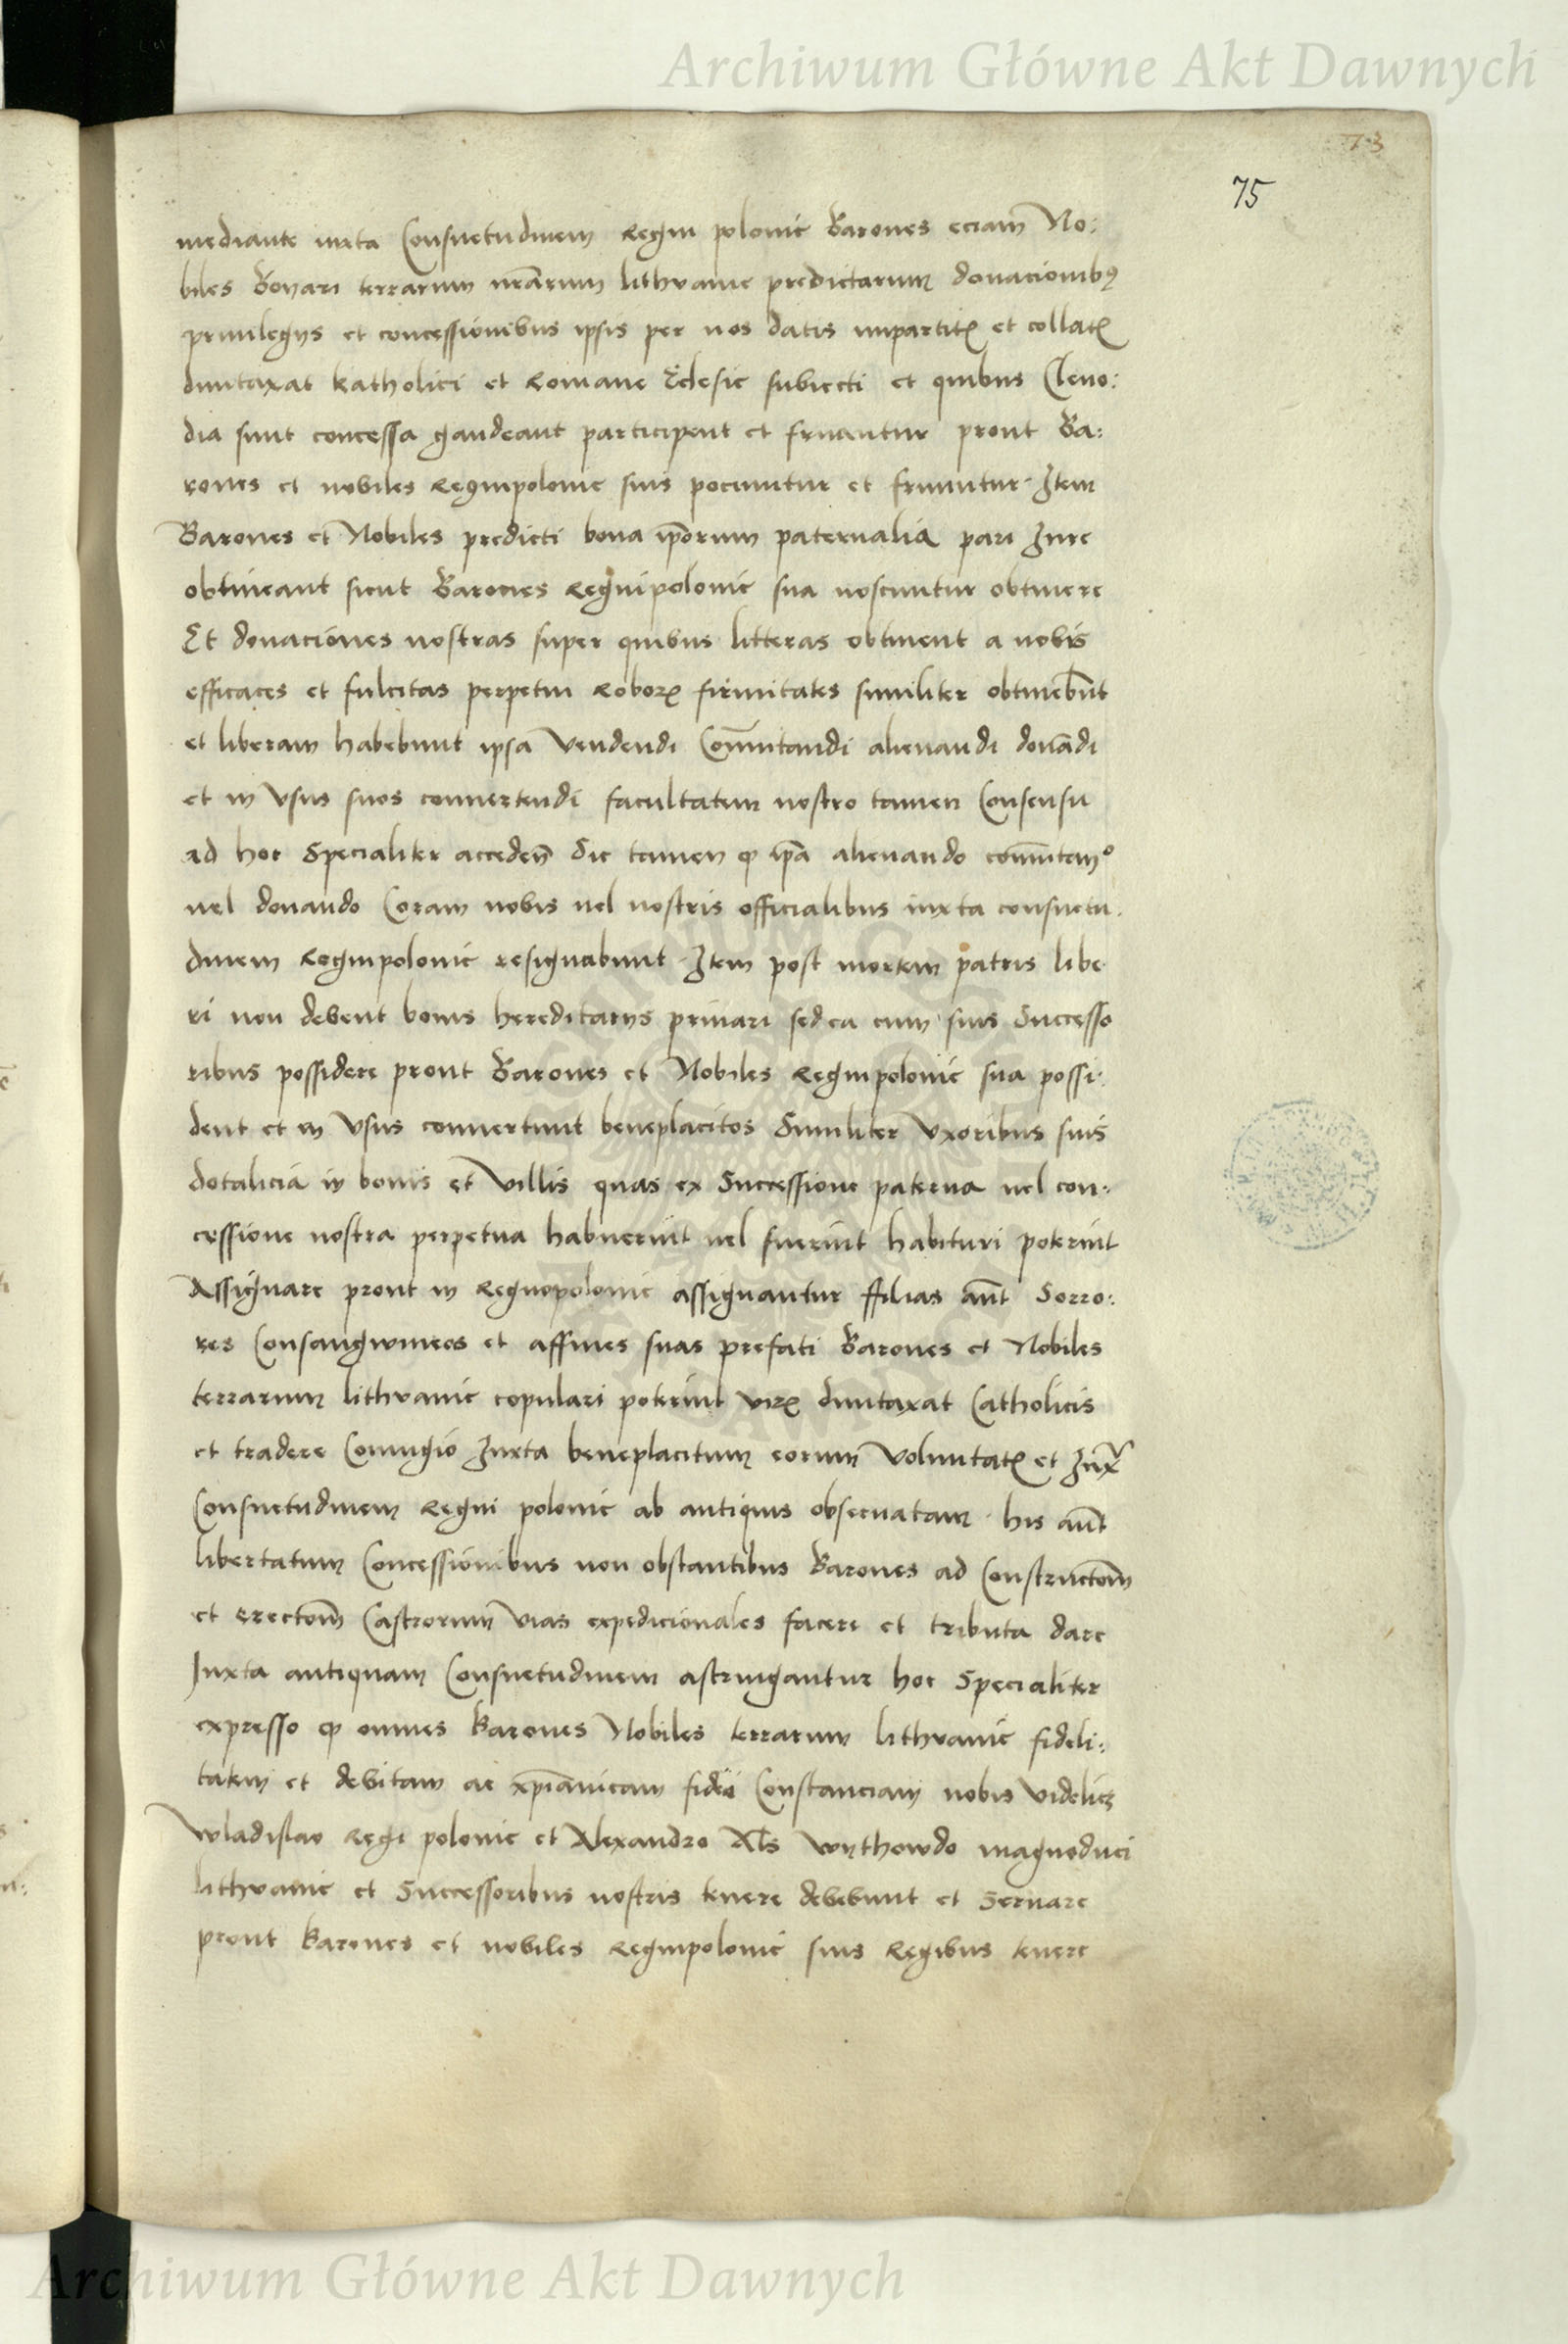 Archiwum Główne Akt Dawnych
73
75
mediante iuxta Consuetudinem Regni polonie Barones eciam No:
biles Boyari terrarum nrārum lithvanie predictarum donacionibꝰ
priuilegys et concessionibus ipsis per nos datis impartitꝭ et collatꝭ
duntaxat katholici et Romane Ecclesie subiecti et quibus Cleno:
dia sunt concessa gaudeant participent et fruantur prout Ba:
rones et nobiles Regnipolonie suis pociuntur et fruuntur · Item
Barones et Nobiles predicti bona ip̄orum paternalia pari Iure
obtineant sicut Barones Regnipolonie sua noscuntur obtinere
Et donaciones nostras super quibus litteras obtinent a nobis
efficaces et fulcitas perpetui Roborꝭ firmitates similiter obtinebūt
et liberam habebunt ipsa Vendendi Com̄utandi alienandi donādi
et in Vsus suos conuertendi facultatem nostro tamen Consensu
ad hoc Specialiter acceden̄ Sic tamen ꝙ ip̄a alienando com̄utanº
uel donando Coram nobis uel nostris officialibus iuxta consuetu:
dinem Regnipolonie resignabunt · Item post mortem patris libe
ri non debent bonis hereditarys priuari sed ea cum suis Successo
ribus possidere prout Barones et Nobiles Regnipolonie sua possi:
dent et in Vsus conuertunt beneplacitos Similiter Vxoribus suis
dotalicia in bonis et Villis quas ex Successione paterna uel con:
cessione nostra perpetua habuerint uel fuerint habituri poterint
Assignare prout in Regnopolonie assignantur ffilias aūt Sorro:
res Consangwineos et affines suas prefati Barones et Nobiles
terrarum lithvanie copulari poterint virꝭ duntaxat Catholicis
et tradere Coniugio Iuxta beneplacitum eorum Voluntatꝭ et Iuxᵃ
Consuetudinem Regni polonie ab antiquis obseruatam · his aūt
libertatum Concessionibus non obstantibus Barones ad Constructōm̄
et erectōm̄ Castrorum Vias expedicionales facere et tributa dare
Iuxta antiquam Consuetudinem astringantur hoc Specialiter
expresso ꝙ omnes Barones Nobiles terrarum lithvanie fideli:
tatem et debitam ac xp̄iānicam fidei Constanciam nobis videlicꝫ
Wladislao Regi polonie et Alexandro Al̄s Wythowdo magnoduci
lithvanie et Successoribus nostris tenere debebunt et Seruare
prout Barones et nobiles Regnipolonie suis Regibus tenere
Archiwum Główne Akt Dawnych